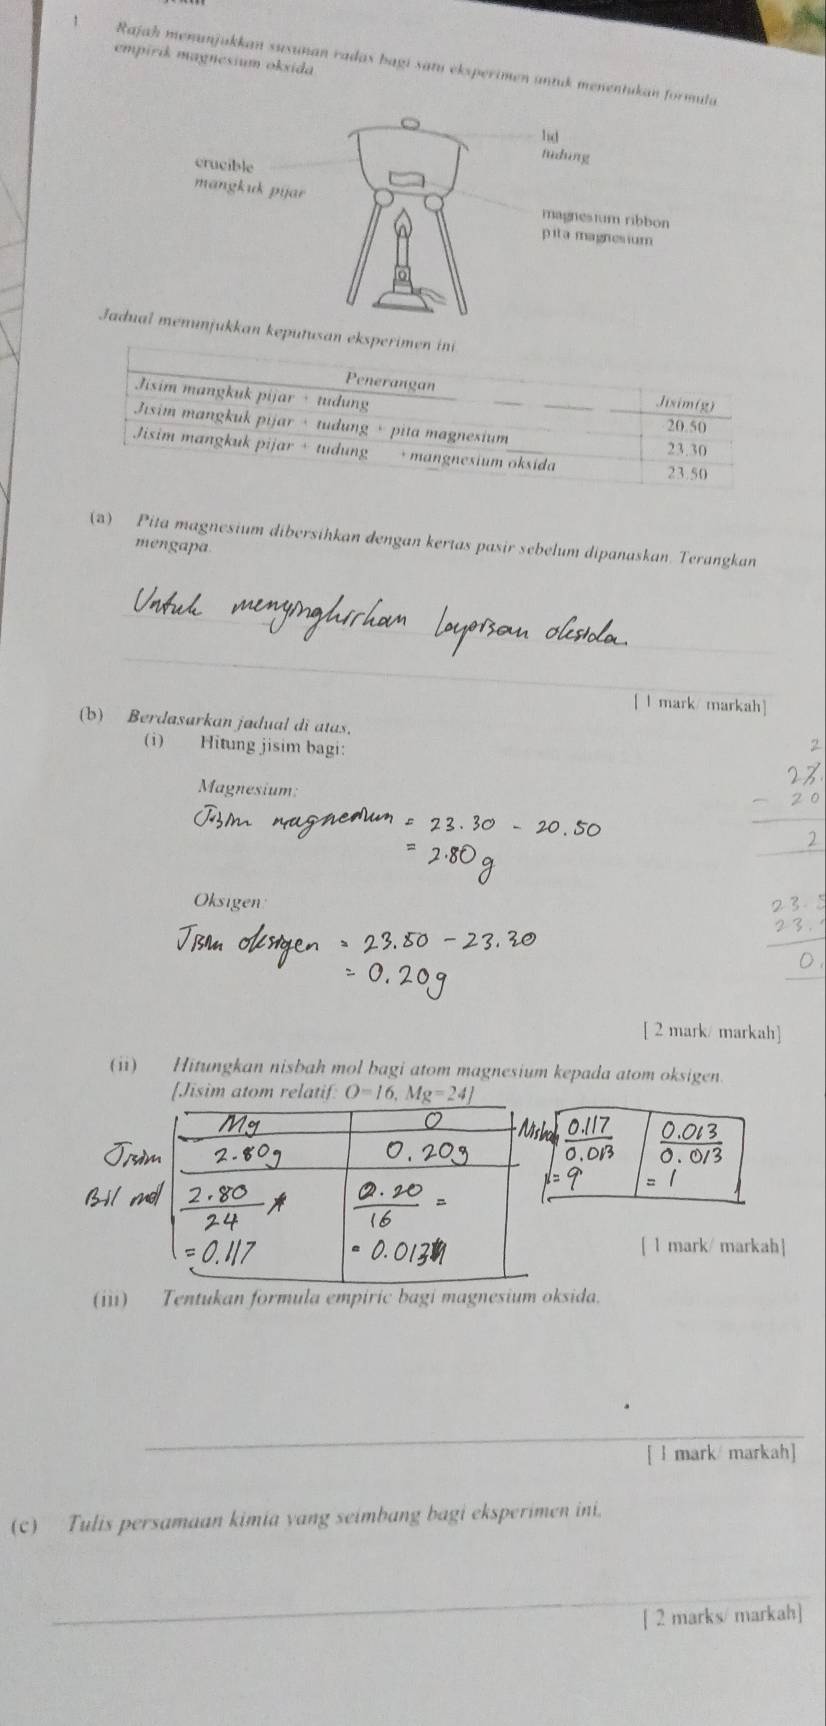 1 Rajah menunjukkan susunan radas bagi satu eksperimen untuk menentukan formula
empirik magnesium oksida
lid
tudung
crucible
mangkuk pijar
magnesium ribbon
pita magnesium
Jadual menunjukkan keputusan eksperimen ini
Penerangan Jisim(g)
Jisim mangkuk pijar + tudung 20.50
Jisim mangkuk pijar + tudung + pita magnesium 23.30
Jisim mangkuk pijar + tudung + mangnesium oksida 23.50
(a) Pita magnesium dibersihkan dengan kertas pasir sebelum dipanaskan. Terangkan
mengapa.
Untuk menyinghirkan
[ 1 mark/ markah]
(b) Berdasarkan jadual di atas,
(i) Hitung jisim bagi:
Magnesium:
Jisim magnesium = 23.30 - 20.50
= 2.80 g
Oksigen
Jisim oksigen = 23.50 - 23.30
= 0.20g
[ 2 mark/ markah]
(ii) Hitungkan nisbah mol bagi atom magnesium kepada atom oksigen.
[Jisim atom relatif: O=16, Mg=24]
Mg O
Jisim 2.80g 0.20g
Bil mol 2.80/24 0.20/16 =
= 0.117 = 0.013
Nisbah 0.117/0.013 0.013/0.013
= 9 = 1
[ 1 mark/ markah]
(iii) Tentukan formula empiric bagi magnesium oksida.
[ 1 mark/ markah]
(c) Tulis persamaan kimia yang seimbang bagi eksperimen ini.
[ 2 marks/ markah]